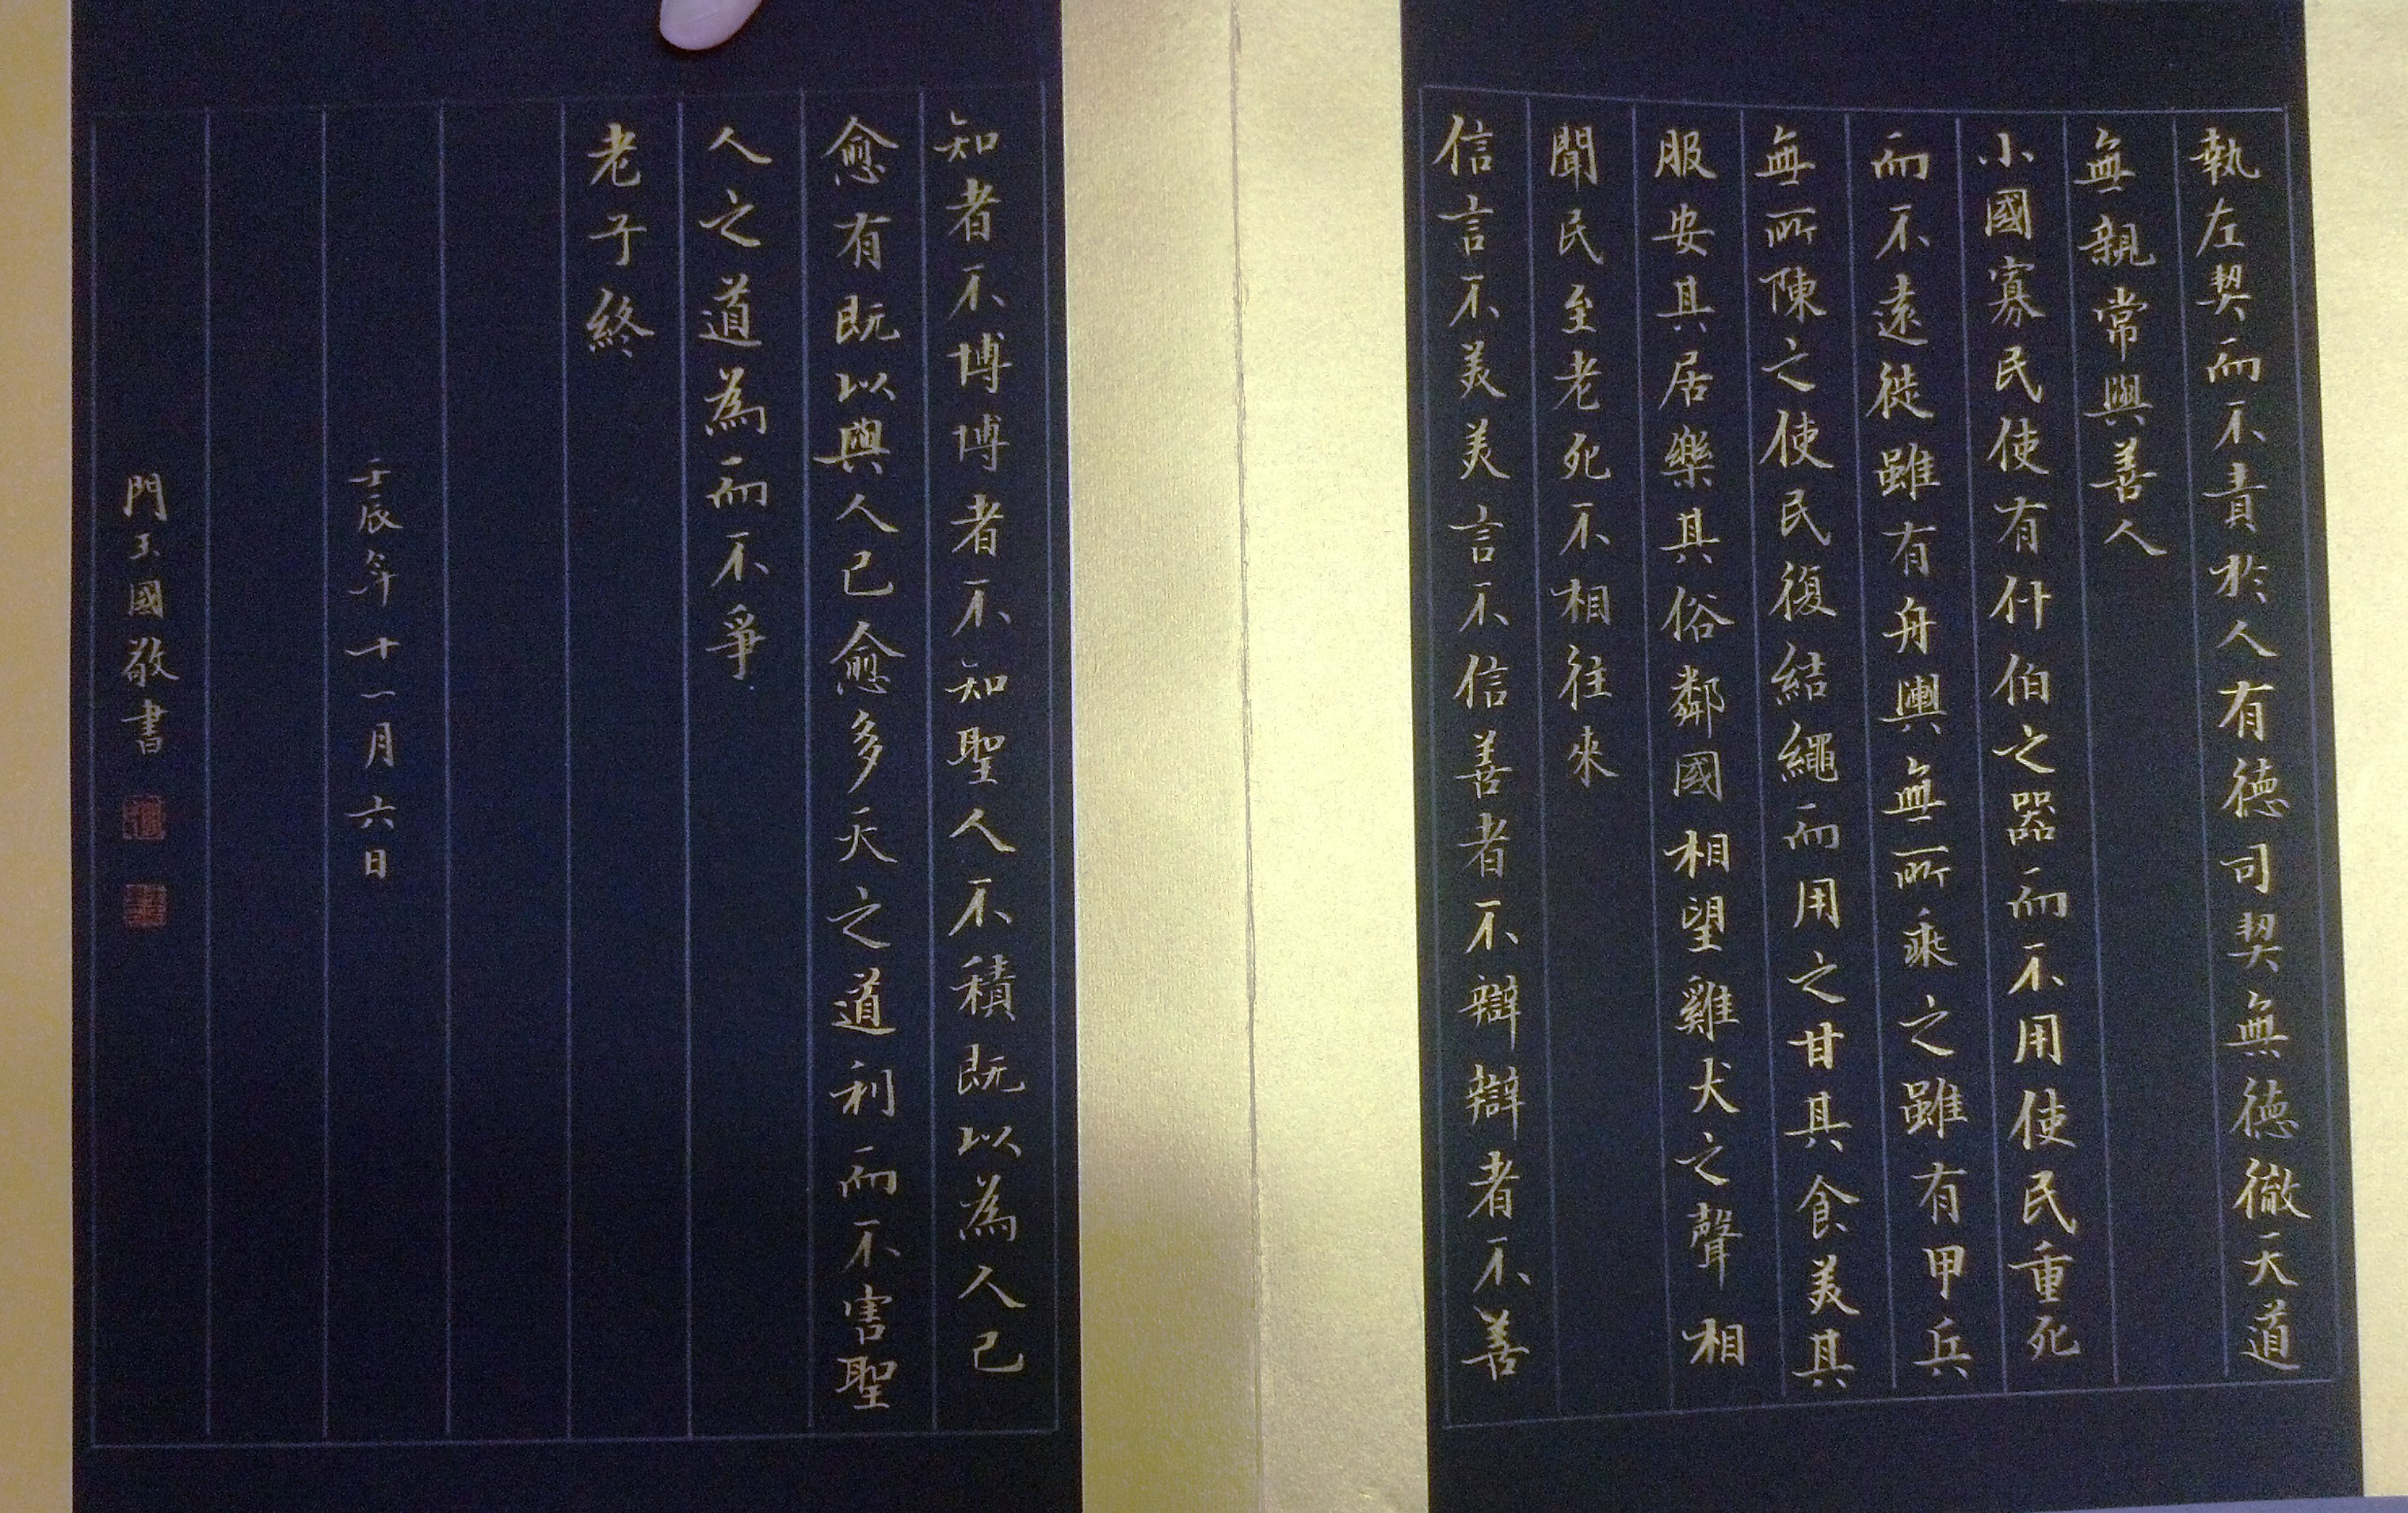 執左契而不責於人有德司契無德徹天道
無親常與善人
小國寡民使有什伯之器而不用使民重死
而不遠徙雖有舟輿無所乘之雖有甲兵
無所陳之使民復結繩而用之甘其食美其
服安其居樂其俗鄰國相望雞犬之聲相
聞民至老死不相往來
信言不美美言不信善者不辯辯者不善
知者不博博者不知聖人不積既以為人己
愈有既以與人己愈多天之道利而不害聖
人之道為而不爭
老子終
壬辰年十一月六日
門玉國敬書